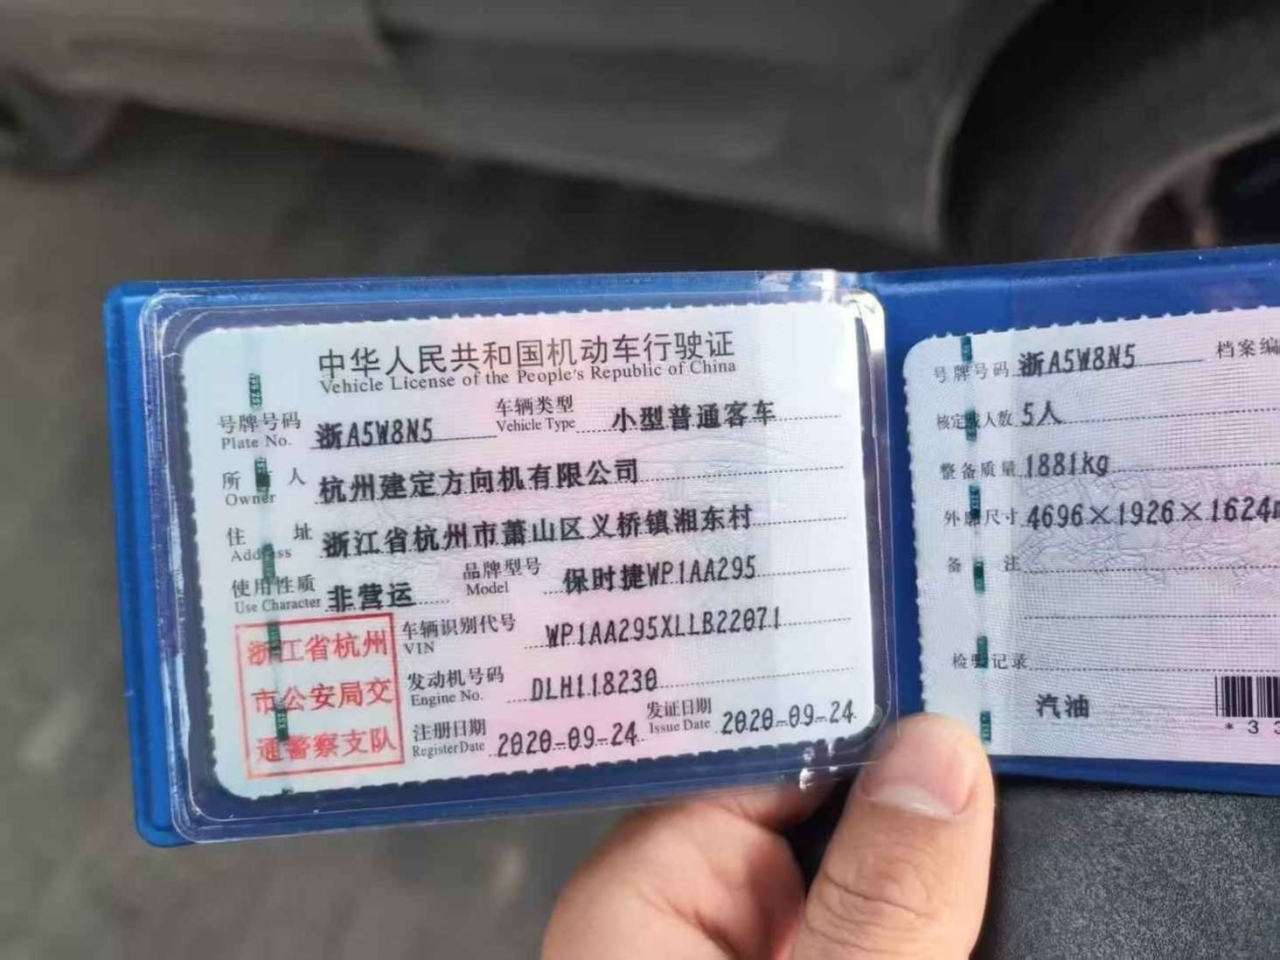 中华人民共和国机动车行驶证
Vehicle License of the People's Republic of China
号牌号码 浙A5W8N5 车辆类型 小型普通客车
Plate No. Vehicle Type
所 人 杭州建定方向机有限公司
Owner
住 址 浙江省杭州市萧山区义桥镇湘东村
Address
使用性质 非营运 品牌型号 保时捷WP1AA295
Use Character Model
车辆识别代号 WP1AA295XLLB22071
VIN
发动机号码 DLH118230
Engine No.
注册日期 2020-09-24 发证日期 2020-09-24
Register Date Issue Date
浙江省杭州
市公安局交
通警察支队
号牌号码 浙A5W8N5 档案编
核定 人数 5人
整备质量 1881kg
外廓尺寸 4696×1926×1624
备 注
检验记录
汽油
*3